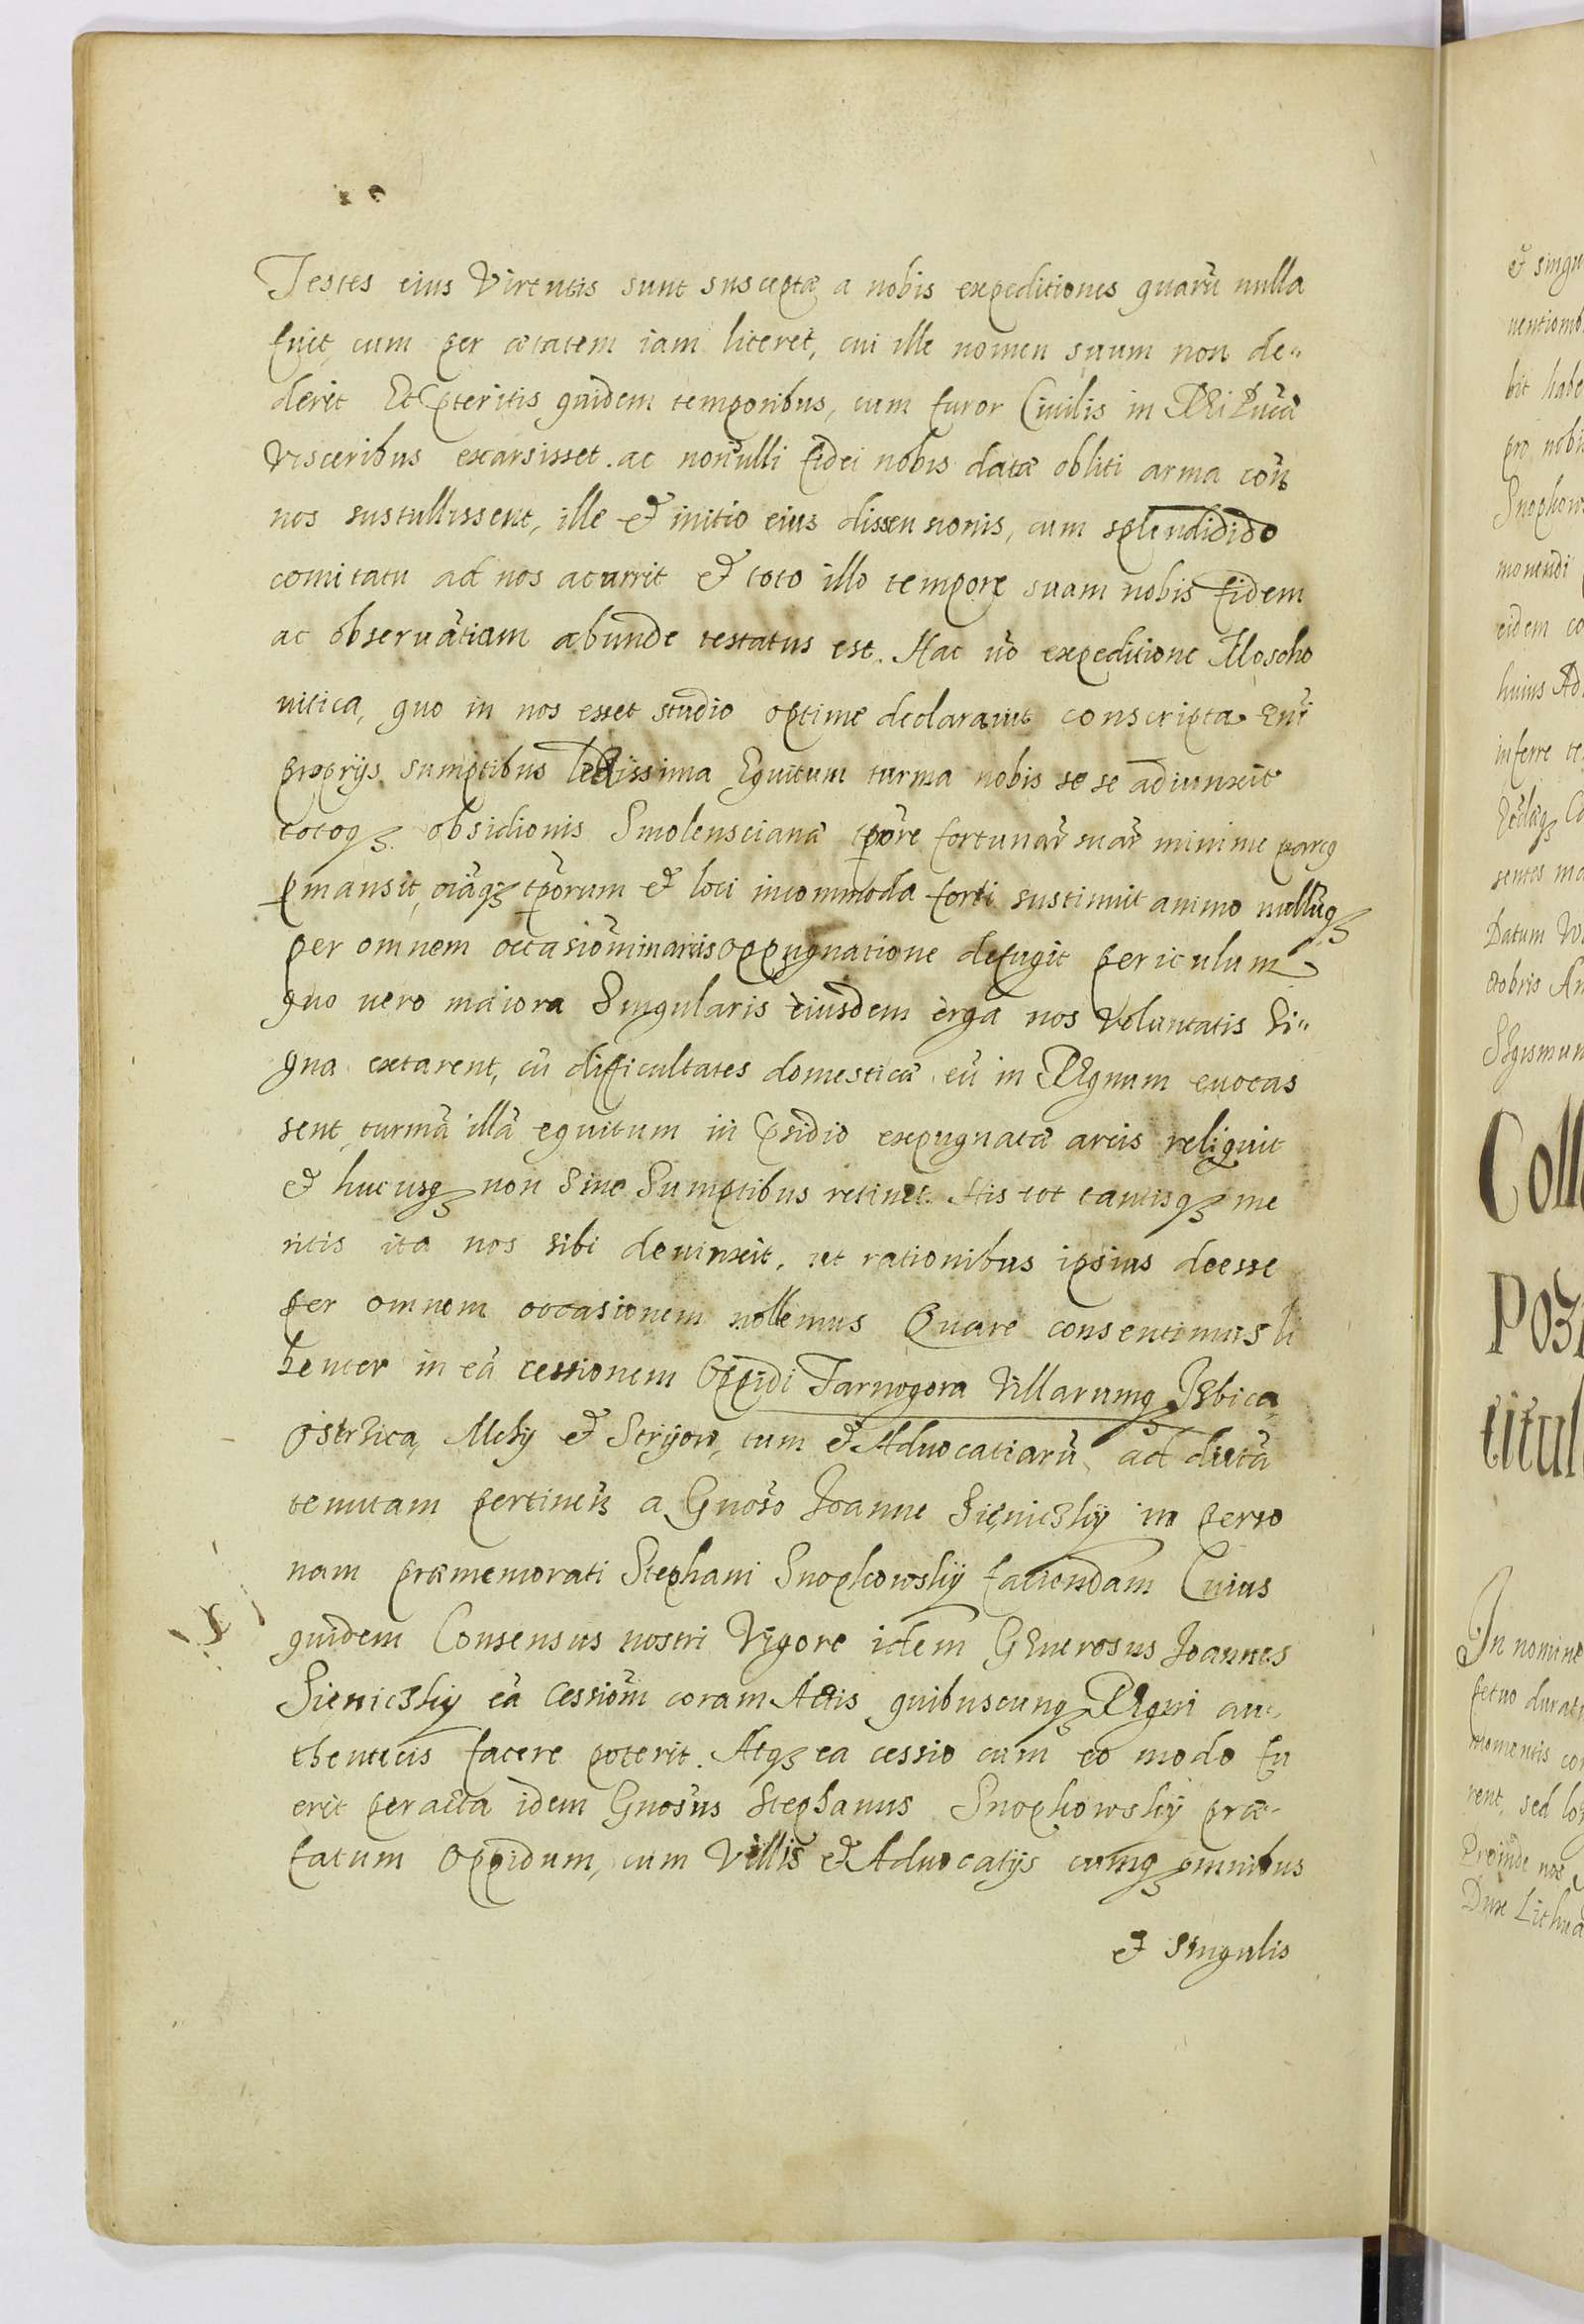 Testes eius Virtutis sunt susceptæ a nobis expeditiones quarũ nulla
fuit, cum per ætatem iam liceret, cui ille nomen suum non de„
derit Et pteritis quidem temporibus, cum furor Ciuilis in
visceribus exarsisset. ac nonulli fidei nobis datæ obliti arma cõn
nos sustullissent, ille et initio eius dissensionis, cum splendidido
comitatu ad nos acurrit et toto illo tempore suam nobis fidem
ac obseruãtiam abunde testatus est. Hac ũo expeditione Moscho
uitica, quo in nos esset studio optime declarauit conscripta Eni
proprijs sumptibus lectissima Equitum turma nobis se se adiunxit
totoq3 obsidionis Smolenscianæ tpõre fortunar̃ suar̃ minime parcg
pmansit, oiãq3 tpõrum et loci incommoda forti sustinuit animo nullũq3
per omnem occasiõm in arcis oppugnatione defugit periculum
quo uero maiora Singularis eiusdem erga nos Voluntatis Si„
gna extarent, cũ difficultates domesticæ eũ in Regnum euocas
sent turmã illã equitum in psidio expugnatæ arcis reliquit
et hucusq3 non Sine Sumptibus retinet. His tot tantisq3 me
ritis ita nos sibi deuinxit, ut rationibus ipsius deesse
per omnem occasionem nollemus Quare consentimus li
benter in eã cessionem Oppidi Tarnogora Villarumq3 Isbica,
Ostrsica, Mchy et Stryow, tum et Aduocatiarũ, ad dictã
tenutam pertineñ a Gnoso Joanne Sięniczky in perso
nam præmemorati Stephani Snopkowsky faciendam Cuius
quidem Consensus nostri Vigore idem Generosus Joannes
Sieniczky eã Cessiõm coram Actis quibuscunq3 Regni au„
thenticis facere poterit. Atq3 ea cessio cum eo modo fu
erit peracta idem Gnosus Stephanus Snopkowsky præ„
fatum Oppidum, cum Villis et Aduocatijs cumq3 omnibus
et singulis